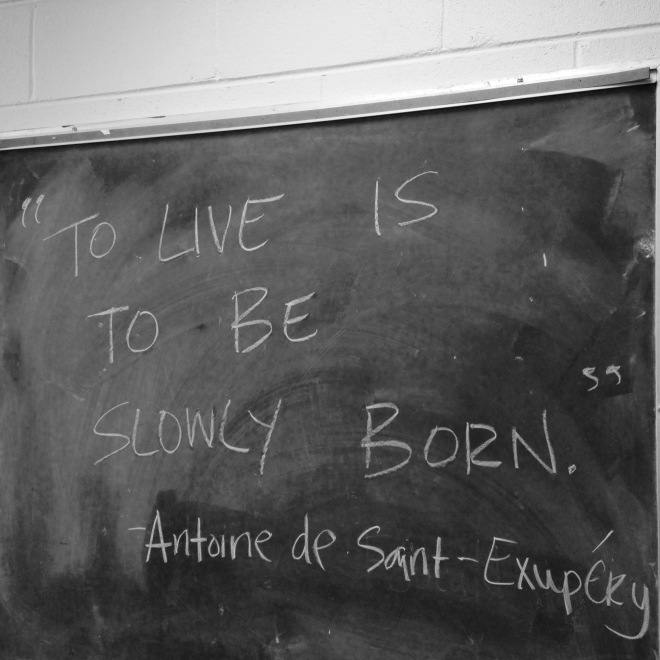 "TO LIVE IS
TO BE
SLOWLY BORN."
-Antoine de Saint-Exupéry